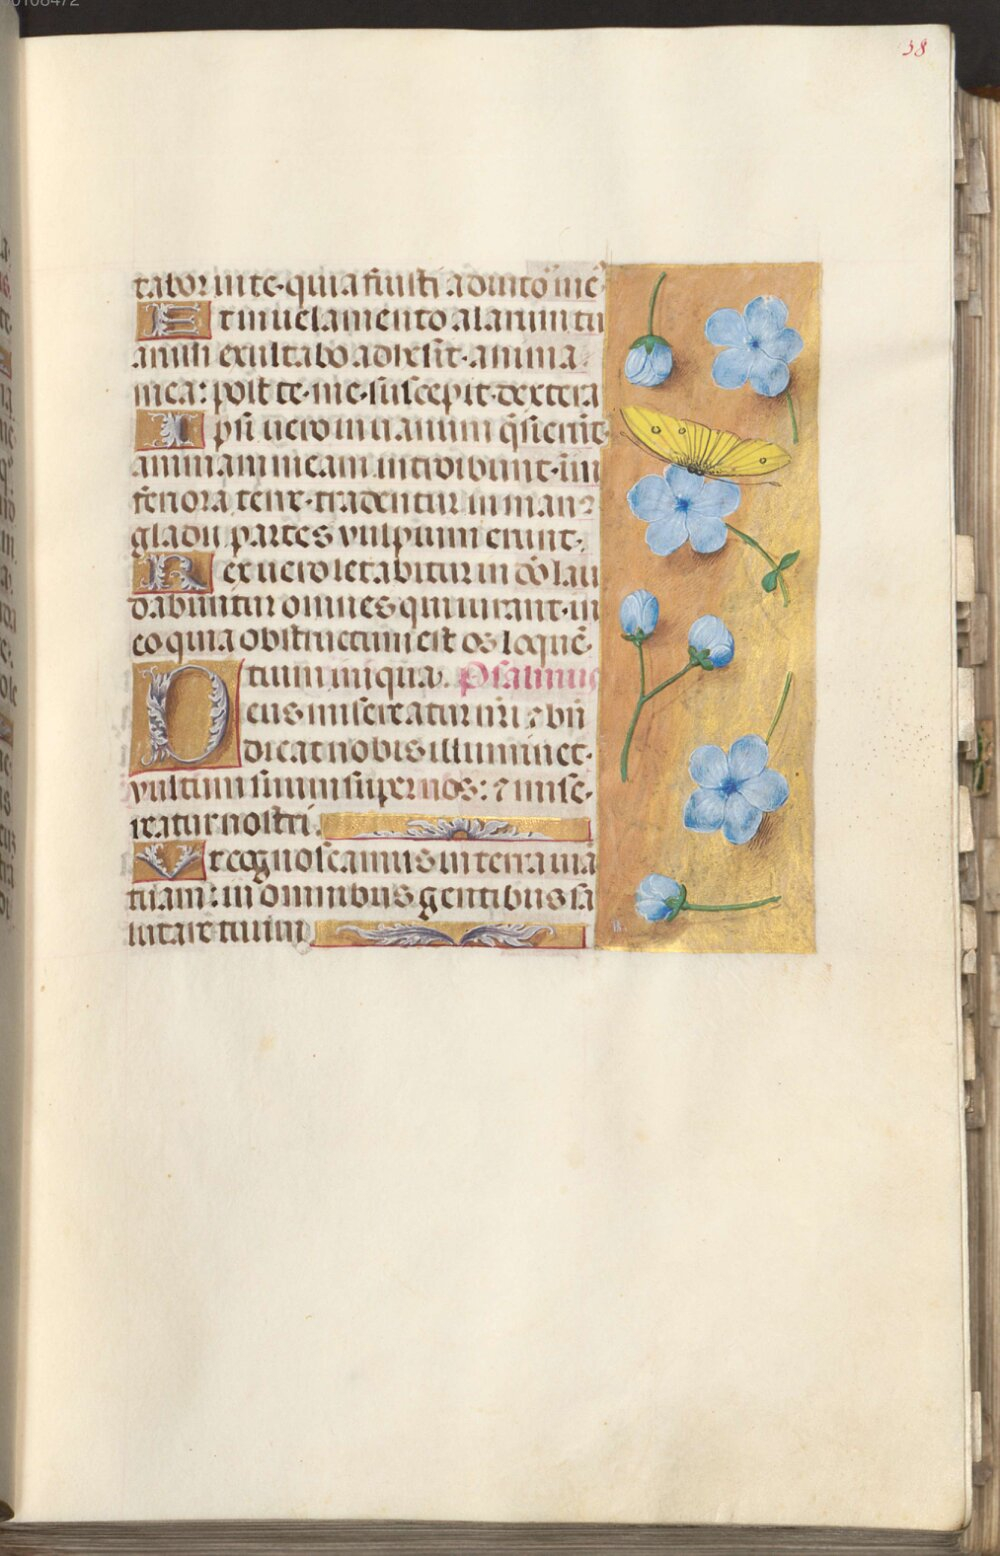 38
tabor in te·quia fuisti adiuto᷒ me᷒
Et in uelamento alarum tu
arum exultabo adhesit·anima
mea: post te·me·suscepit·dextera
Ipsi uero in uanum q̃sierũt·
animam meam introibunt·in in
feriora terre·tradentur in man⁹
gladii partes vulpium erunt·
Rex uero letabitur in dõ lau
dabuntur omnes qui iurant·in
eo quia obstructum est os loquẽ
tium iniqua. Psalmus
Deus misereatur nr̃i ⁊ bñ
dicat nobis illuminet·
vultum suum super nos: ⁊ mise·
reatur nostri.
Vt cognoscamus in terra uiã
tuam: in omnibus gentibus sa
lutare tuum